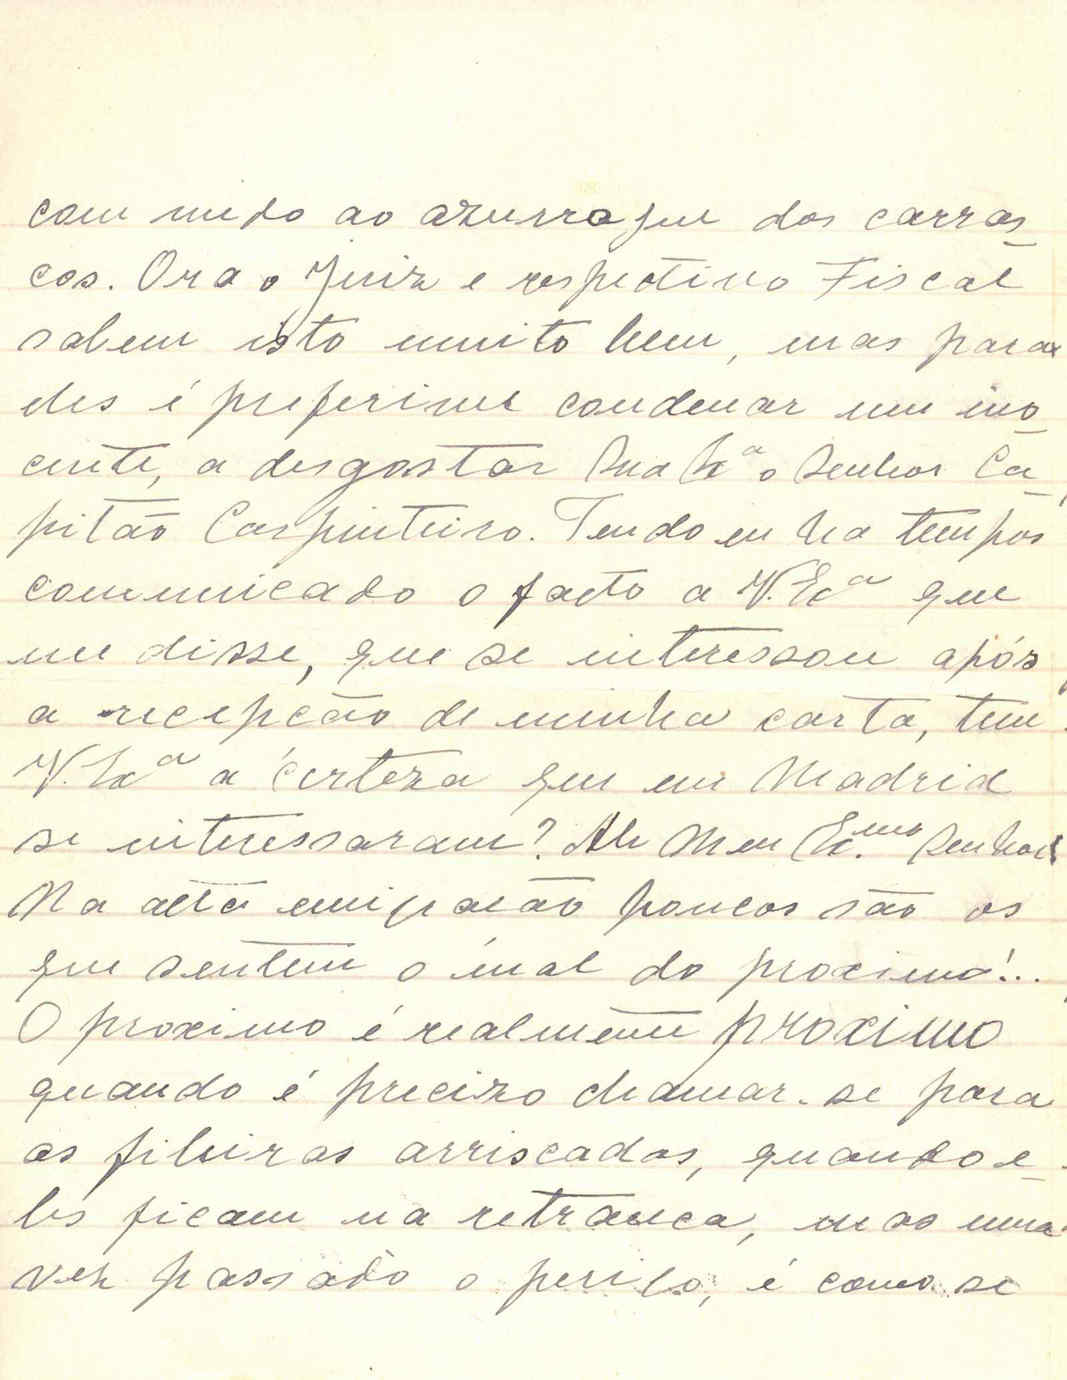 com medo ao azurrague dos carras
cos. Ora o Juiz e respectivo Fiscal
sabem isto muito bem, mas para
eles é preferivel condenar um ino
cente, a desgostar Sua Exª o Senhor Ca
pitão Carpinteiro. Tendo eu ha tempos
comunicado o facto a V. Exª que
me disse, que se interessou após
a recepção de minha carta, tem
V. Exª a certeza que em Madrid
se interessaram? Ah Meu Ex.mo Senhor
Na alta emigração poucos são os
que sentem o mal do proximo!..
O proximo é realmente proximo
quando é precizo chamar-se para
as fileiras arriscadas, quando e
les ficam na retranca, mas uma
vez passado o perigo, é como se